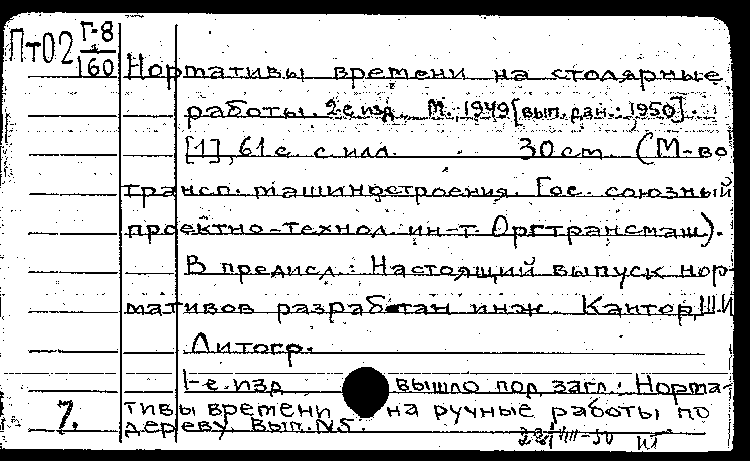 Пт02 Г-8
160
Нормативы времени на столярные
работы. 2-е изд. М., 1949 [вып. дан.: 1950].
[1], 61 с. с илл. 30 см. (М-во
трансп. машиностроения. Гос. союзный
проектно-технол. ин-т Оргтрансмаш).
В предисл.: Настоящий выпуск нор-
мативов разработан инж. Кантор, Ш.И
Литогр.
1-е изд вышло под загл.: Норма-
7. тивы времени на ручные работы по
дереву. Вып. №5.